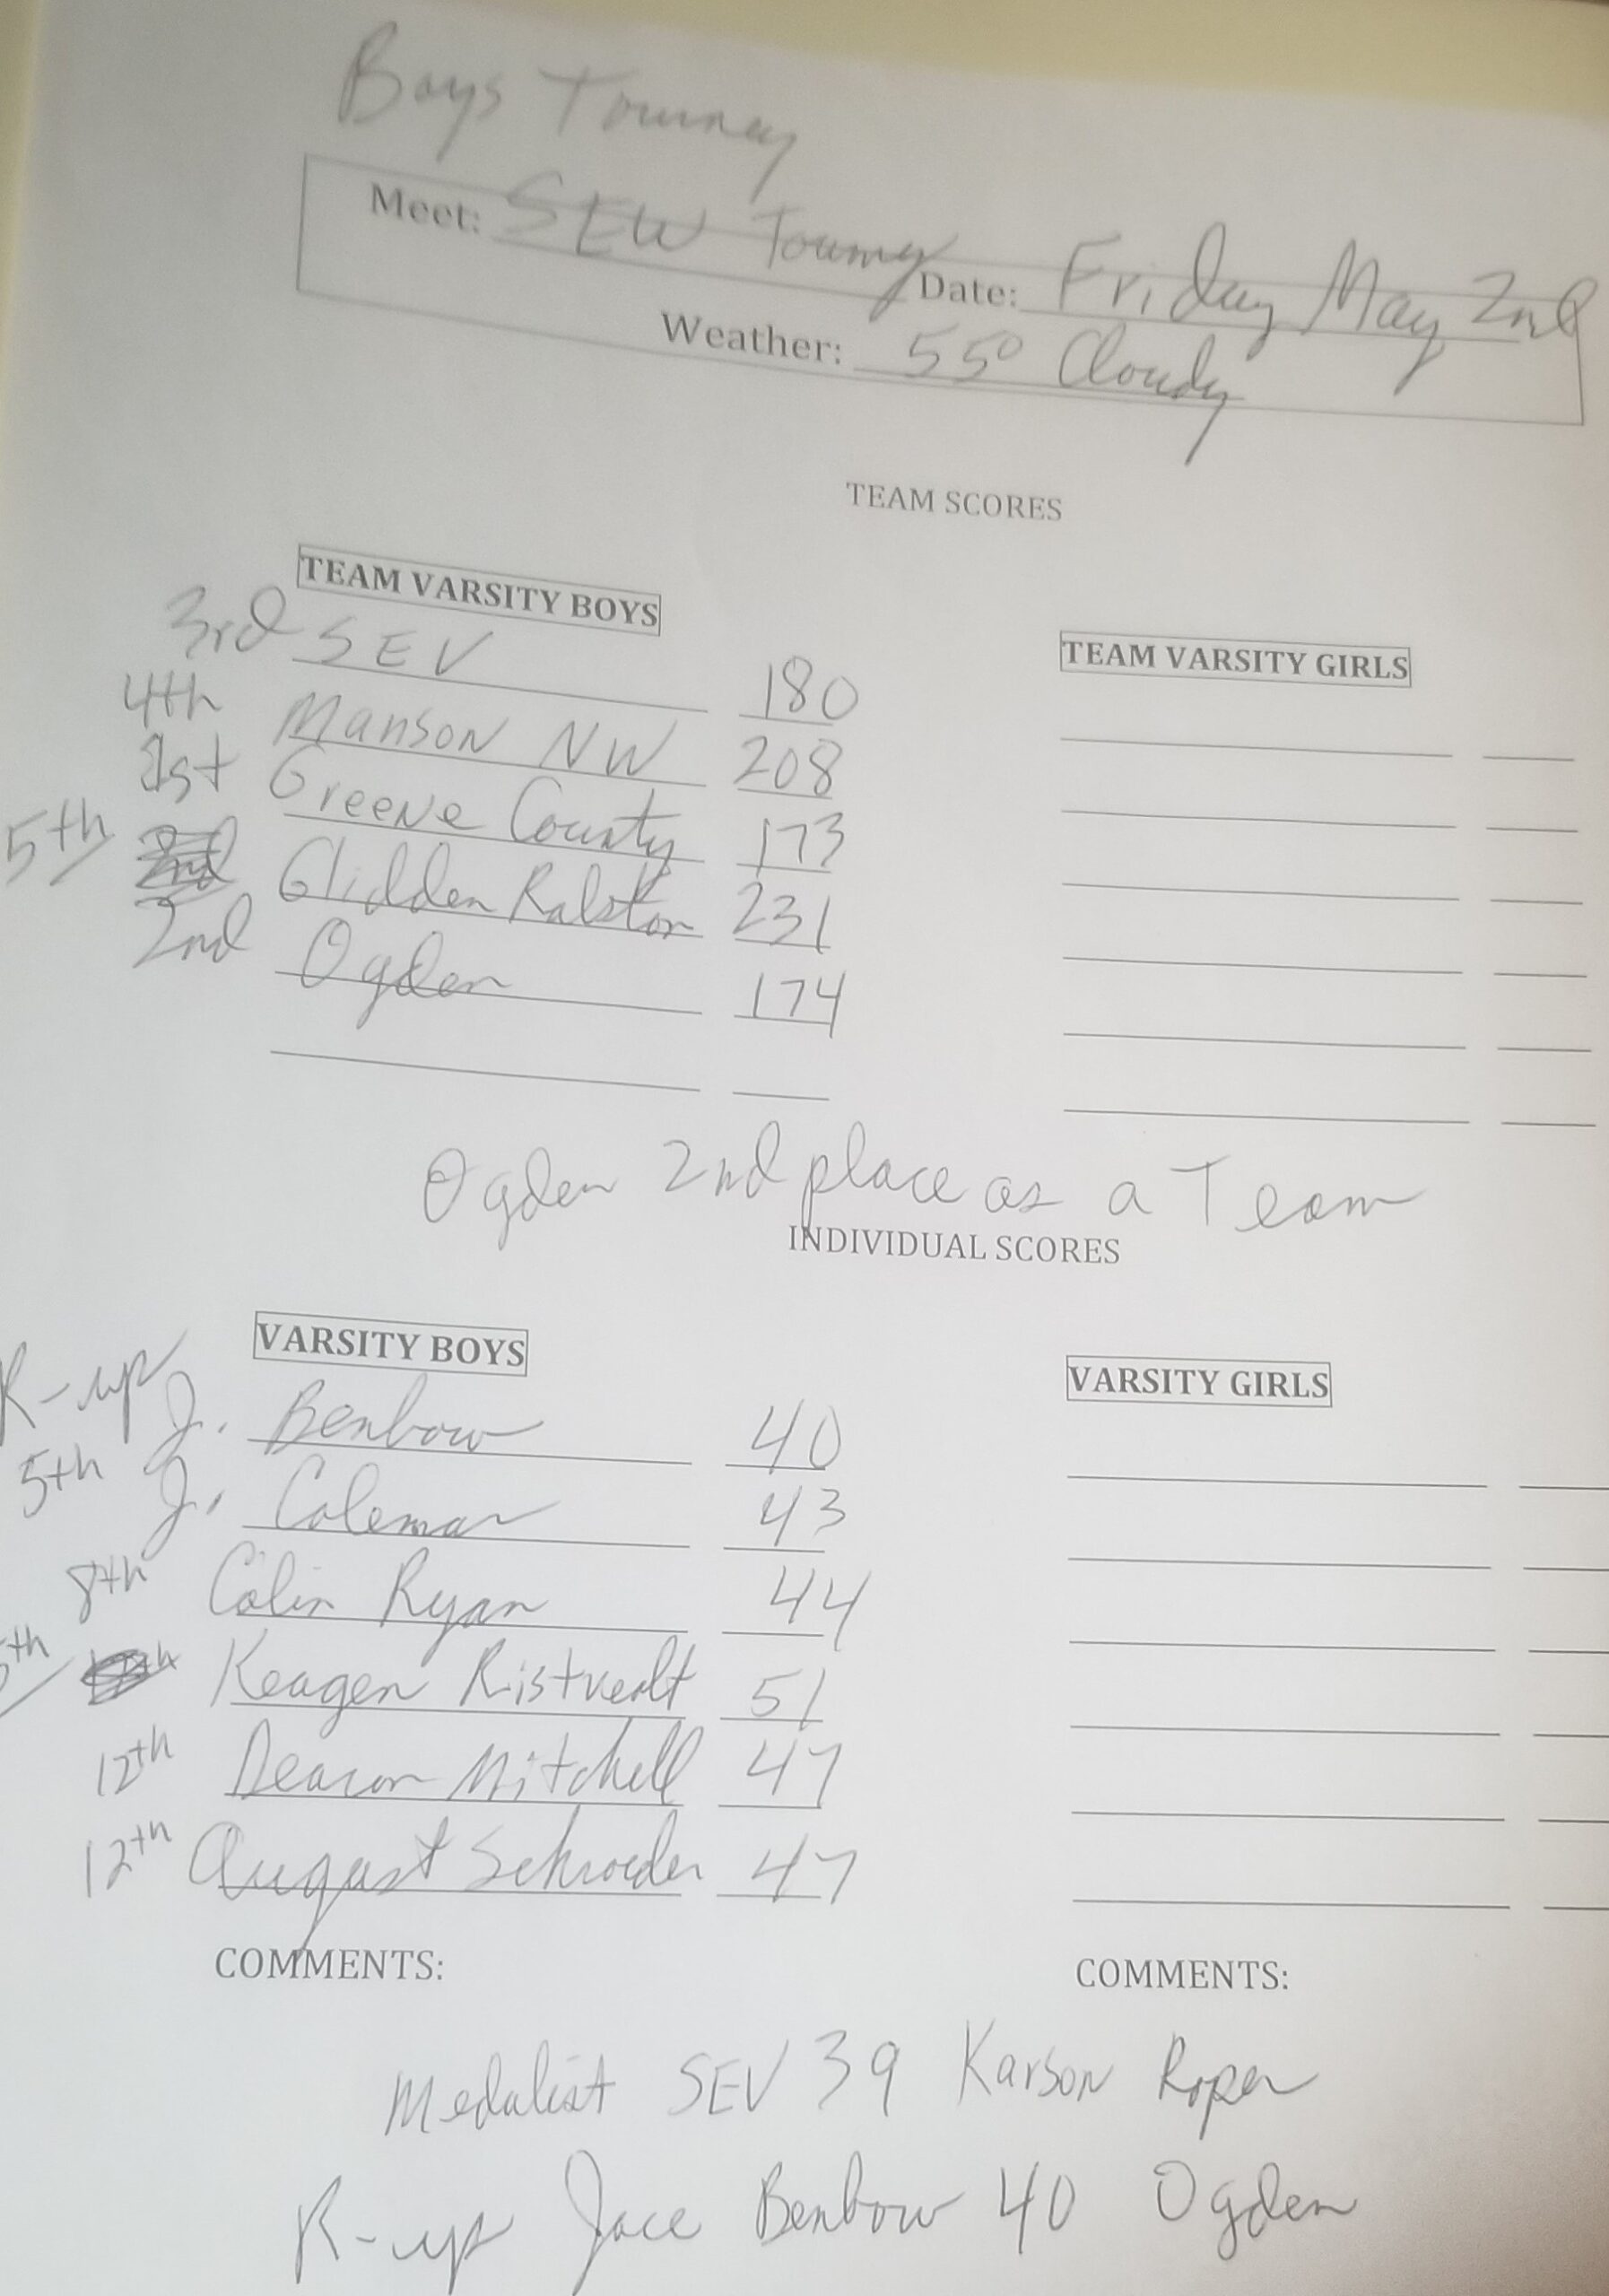 Boys Tourney
Meet: SEW Tourny Date: Friday May 2nd
Weather: 55° Cloudy
TEAM SCORES
TEAM VARSITY BOYS
3rd SEV 180
4th Manson NW 208
1st Greene County 173
5th Glidden Ralston 231
2nd Ogden 174
TEAM VARSITY GIRLS
Ogden 2nd place as a Team
INDIVIDUAL SCORES
VARSITY BOYS
R-up J. Benbow 40
5th J. Coleman 43
8th Colin Ryan 44
Keagen Ristvealt 51
12th Deacon Mitchell 47
12th August Schroeder 47
VARSITY GIRLS
COMMENTS:
COMMENTS:
Medalist SEV 39 Karson Roper
R-up Jace Benbow 40 Ogden